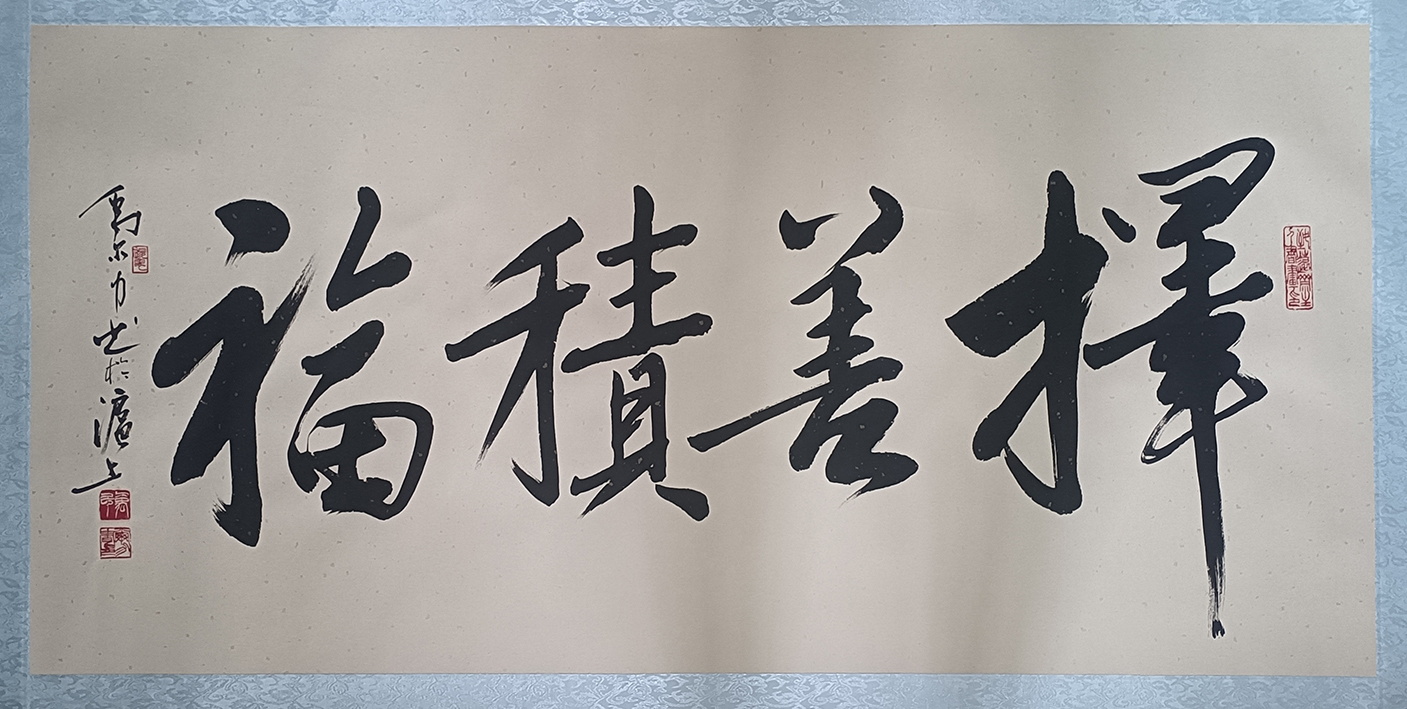 擇善積福
禹尔力书於滬上